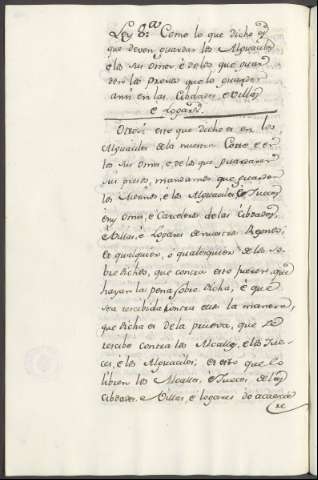 Ley 8.ª Como lo que dicho es
que deven guardar los Alguaciles
é los sus Omes, é de los que guar
den los presos que lo guarden
ansi en las Cibdades, é Villas
é Logares.
Otrosi esto que dicho es en los
Alguaciles de la nuestra Corte, é en
los sus Omes, é de los que guardaren
sus presos, mandamos que guarden
los Merinos, é los Alguaciles, é Jueces
é sus Omes, é Carceleros de las Cibdades,
é Villas, é Logares de nuestros Regnos;
é qualquier, o qualesquier de los so-
bre dichos, que contra esto fuere, que
hayan la pena sobre dicha, é que
sea recebida contra ellos la manera,
que dicha es de la prueva, que se
recibe contra los Alcalles, é los Jue-
ces, é los Alguaciles; et esto que lo
libren los Alcalles, é Jueces de las
Cibdades, é Villas, é logares do acaescie
re